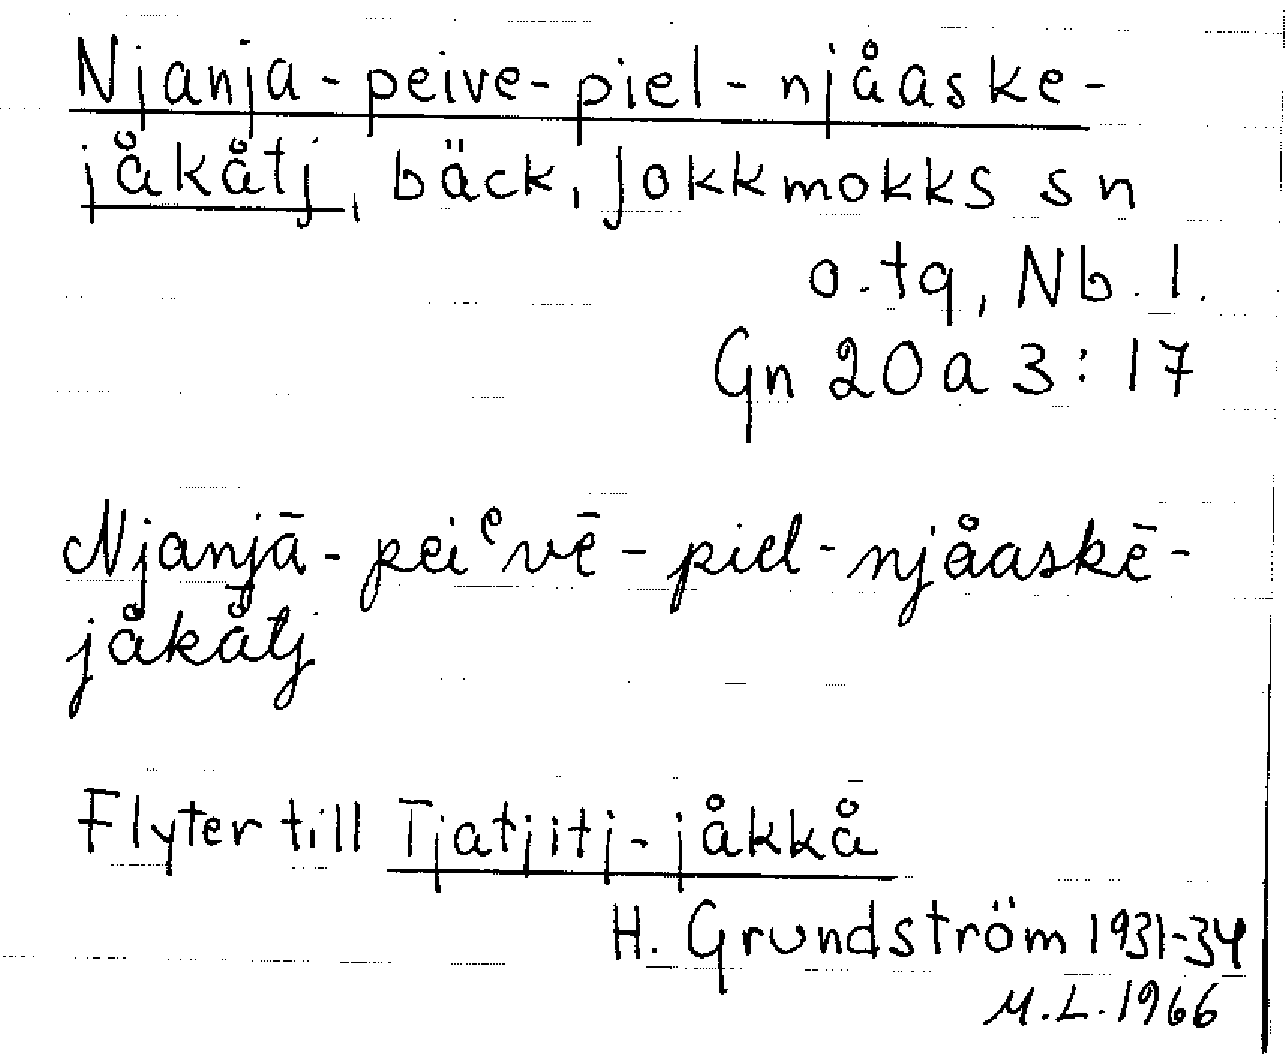 Njanja-peive-piel-njåaske-
jåkåtj, bäck, Jokkmokks sn
o. tg, Nb. l.
Gn 20 a 3:17
Njanjā-peiᵉvē-piel-njåaskē-
jåkåtj
Flyter till Tjatjitj-jåkkå
H. Grundström 1931-34
M.L. 1966